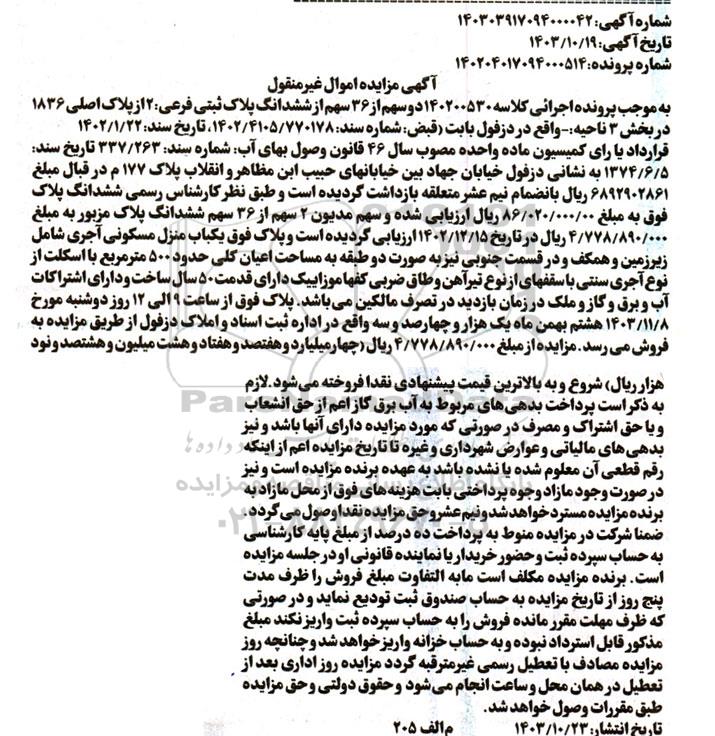 شماره آگهی: ۱۴۰۳۰۳۹۱۷۰۹۴۰۰۰۰۴۲
تاریخ آگهی: ۱۴۰۳/۱۰/۱۹
شماره پرونده: ۱۴۰۲۰۴۰۱۷۰۹۴۰۰۰۵۱۴
آگهی مزایده اموال غیرمنقول
به موجب پرونده اجرائی کلاسه ۱۴۰۲۰۰۵۳۰ دو سهم از ۳۶ سهم از ششدانگ پلاک ثبتی فرعی: ۲ از پلاک اصلی ۱۸۳۶
در بخش ۳ ناحیه:- واقع در دزفول بابت (قبض: شماره سند: ۱۴۰۲/۴۱۰۵/۷۷۰۱۷۸، تاریخ سند: ۱۴۰۲/۱/۲۲
قرارداد یا رای کمیسیون ماده واحده مصوب سال ۴۶ قانون وصول بهای آب: شماره سند: ۳۳۷/۲۶۳ تاریخ سند:
۱۳۷۴/۶/۵ به نشانی دزفول خیابان جهاد بین خیابانهای حبیب ابن مظاهر و انقلاب پلاک ۱۷۷ م در قبال مبلغ
۶۸۹۲۹۰۲۸۶۱ ریال بانضمام نیم عشر متعلقه بازداشت گردیده است و طبق نظر کارشناس رسمی ششدانگ پلاک
فوق به مبلغ ۸۶/۰۲۰/۰۰۰/۰۰ ریال ارزیابی شده و سهم مدیون ۲ سهم از ۳۶ سهم ششدانگ پلاک مزبور به مبلغ
۴/۷۷۸/۸۹۰/۰۰۰ ریال در تاریخ ۱۴۰۲/۱۲/۱۵ ارزیابی گردیده است و پلاک فوق یکباب منزل مسکونی آجری شامل
زیرزمین و همکف و در قسمت جنوبی نیز به صورت دو طبقه به مساحت اعیان کلی حدود ۵۰۰ مترمربع با اسکلت از
نوع آجری سنتی با سقفهای از نوع تیرآهن و طاق ضربی کفها موزاییک دارای قدمت ۵۰ سال ساخت و دارای اشتراکات
آب و برق و گاز و ملک در زمان بازدید در تصرف مالکین می باشد. پلاک فوق از ساعت ۹ الی ۱۲ روز دوشنبه مورخ
۱۴۰۳/۱۱/۸ هشتم بهمن ماه یک هزار و چهارصد و سه واقع در اداره ثبت اسناد و املاک دزفول از طریق مزایده به
فروش می رسد. مزایده از مبلغ ۴/۷۷۸/۸۹۰/۰۰۰ ریال (چهار میلیارد و هفتصد و هفتاد و هشت میلیون و هشتصد و نود
هزار ریال) شروع و به بالاترین قیمت پیشنهادی نقدا فروخته می شود. لازم
به ذکر است پرداخت بدهی های مربوط به آب برق گاز اعم از حق انشعاب
و یا حق اشتراک و مصرف در صورتی که مورد مزایده دارای آنها باشد و نیز
بدهی های مالیاتی و عوارض شهرداری و غیره تا تاریخ مزایده اعم از اینکه
رقم قطعی آن معلوم شده یا نشده باشد به عهده برنده مزایده است و نیز
در صورت وجود مازاد وجوه پرداختی بابت هزینه های فوق از محل مازاد به
برنده مزایده مسترد خواهد شد و نیم عشر و حق مزایده نقدا وصول می گردد.
ضمنا شرکت در مزایده منوط به پرداخت ده درصد از مبلغ پایه کارشناسی
به حساب سپرده ثبت و حضور خریدار یا نماینده قانونی او در جلسه مزایده
است. برنده مزایده مکلف است مابه التفاوت مبلغ فروش را ظرف مدت
پنج روز از تاریخ مزایده به حساب صندوق ثبت تودیع نماید و در صورتی
که ظرف مهلت مقرر مانده فروش را به حساب سپرده ثبت واریز نکند مبلغ
مذکور قابل استرداد نبوده و به حساب خزانه واریز خواهد شد و چنانچه روز
مزایده مصادف با تعطیل رسمی غیرمترقبه گردد مزایده روز اداری بعد از
تعطیل در همان محل و ساعت انجام می شود و حقوق دولتی و حق مزایده
طبق مقررات وصول خواهد شد.
تاریخ انتشار: ۱۴۰۳/۱۰/۲۳ م الف ۲۰۵